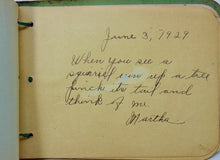 June 3, 1929
When you see a
squirrel run up a tree
pinch its tail and
think of me.
Martha